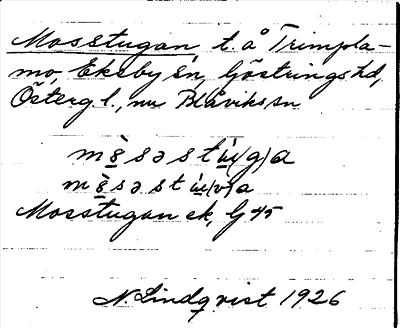 Mosstugan, t. å Trimpla-
mo, Ekeby sn, Göstrings hd,
Österg. l., nu Blåviks sn
m s ə s t (g) a
m s ə s t (v) a
Mosstugan ek, G 45
N. Lindqvist 1926